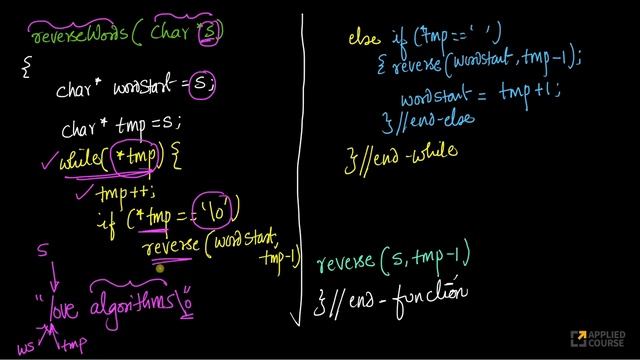 reverseWords( char* s)
{
char* wordstart = s;
char* tmp = s;
while( *tmp) {
tmp++;
if (*tmp == '\0')
reverse (wordstart,
tmp-1)
s
"love algorithms\0
ws
tmp
else if (*tmp==' ')
{ reverse(wordstart, tmp-1);
wordstart = tmp+1;
} //end-else
} //end-while
reverse (s, tmp-1)
} //end-function
APPLIED
COURSE